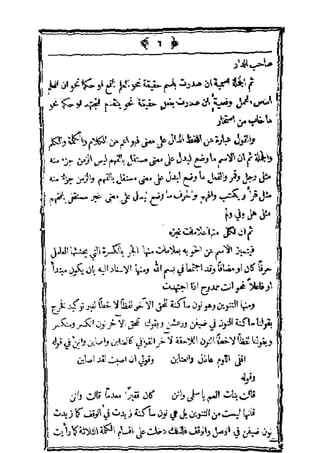 ٦
صاحب الدار
ثم الجملة اسمية ان صدرت باسم حقيقة نحو العلم نافع او حكما نحو ان العلم
وفعلية ان صدرت بفعل حقيقة نحو يتقدم المجتهد او حكما نحو
ما خاب من استشار
والقول عبارة عن اللفظ الدال على معنى فهو اعم من الكلام والكلمة والكلم
والجملة ثم ان الاسم ما وضع ليدل على معنى مستقل بالفهم ليس الزمن جزء منه
مثل رجل وقمر والفعل ما وضع ليدل على معنى مستقل بالفهم والزمن جزء منه
مثل قرأ ويكتب وافهم والحرف ما وضع ليدل على معنى غير مستقل بالفهم
مثل هل وفي ولم
ثم ان لكل منها علامات تميزه
فيتميز الاسم عن اخويه بعلامات منها الجر بالكسرة التي يحدثها العامل
حرفا كان او مضافا وقد اجتمعا في بسم الله ومنها الاسناد اليه بان يكون مبتدأ
او فاعلا نحو انت ممدوح اذا اجتهدت
ومنها التنوين وهو نون ساكنة تلحق الآخر لفظا لا خطا لغير توكيد فخرج
بقولنا ساكنة النون في ضيفن ورعشن وبقولنا تلحق الآخر نون انكسر ومنكسر
وبقولنا لفظا لا خطا النون اللاحقة لآخر القوافي كالعتابن واصابن وانن في قوله
اقلي اللوم عاذل والعتابن وقولي ان اصبت لقد اصابن
وقوله
قالت بنات العم يا سلمى وانن كان فقيرا معدما قالت وانن
فانها ليست من التنوين بل هي نون ساكنة زيدت في الوقف كما زيدت
نون ضيفن في الوصل والوقف فلذلك دخلت على اقسام الكلمة الثلاثة كما رأيت